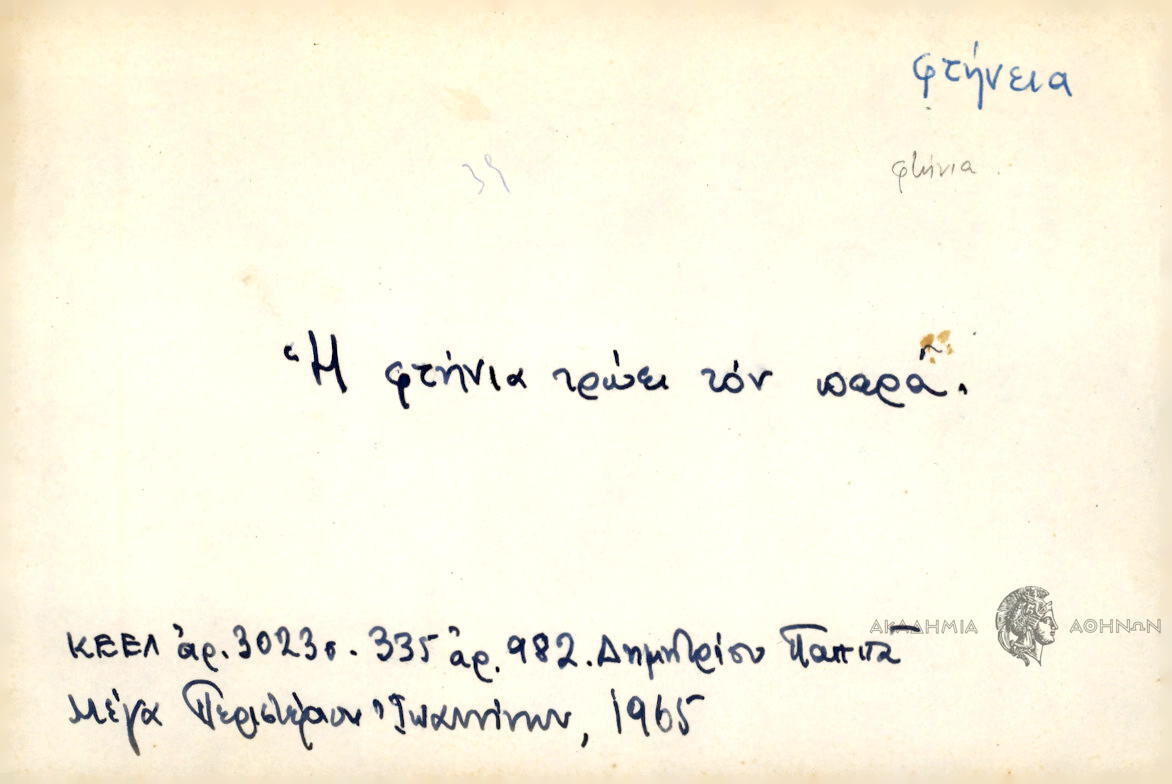 φτήνεια
φτήνια.
39
Ἡ φτήνια τρώει τόν παρᾶ.
ΑΚΑΔΗΜΙΑ ΑΘΗΝΩΝ
ΚΕΕΛ ἀρ. 3023 σ. 335 ἀρ. 982. Δημητρίου Παππᾶ
Μέγα Περιστέριον Ἰωαννίνων, 1965